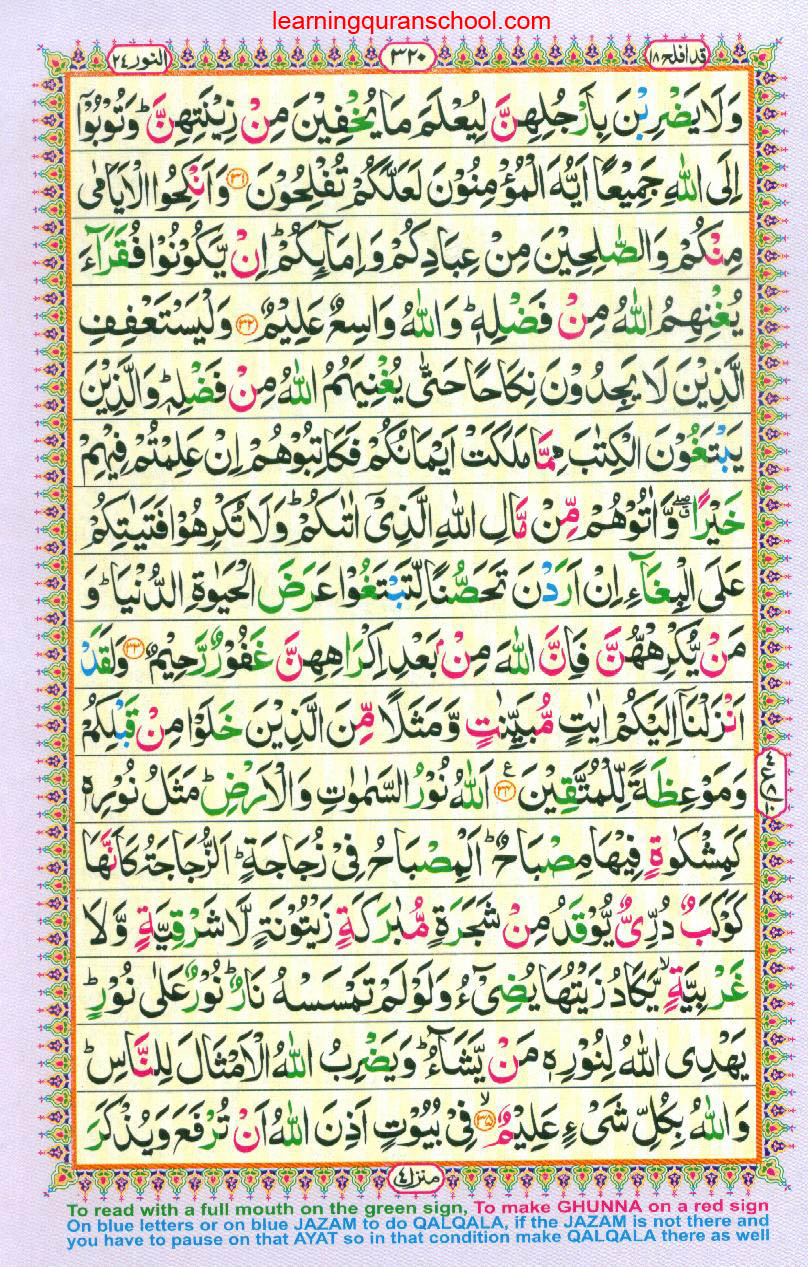 learningquranschool.com
قد افلح ١٨ ٣٢٠ النور ٢٤
وَلَا يَضْرِبْنَ بِاَرْجُلِهِنَّ لِيُعْلَمَ مَا يُخْفِيْنَ مِنْ زِيْنَتِهِنَّ ؕ وَتُوْبُوْۤا
اِلَى اللّٰهِ جَمِيْعًا اَيُّهَ الْمُؤْمِنُوْنَ لَعَلَّكُمْ تُفْلِحُوْنَ ﴿۳۱﴾ وَاَنْكِحُوا الْاَيَامٰى
مِنْكُمْ وَالصّٰلِحِيْنَ مِنْ عِبَادِكُمْ وَاِمَآىِٕكُمْ ؕ اِنْ يَّكُوْنُوْا فُقَرَآءَ
يُغْنِهِمُ اللّٰهُ مِنْ فَضْلِهٖ ؕ وَاللّٰهُ وَاسِعٌ عَلِيْمٌ ﴿۳۲﴾ وَلْيَسْتَعْفِفِ
الَّذِيْنَ لَا يَجِدُوْنَ نِكَاحًا حَتّٰى يُغْنِيَهُمُ اللّٰهُ مِنْ فَضْلِهٖ ؕ وَالَّذِيْنَ
يَبْتَغُوْنَ الْكِتٰبَ مِمَّا مَلَكَتْ اَيْمَانُكُمْ فَكَاتِبُوْهُمْ اِنْ عَلِمْتُمْ فِيْهِمْ
خَيْرًا ۖۗ وَّاٰتُوْهُمْ مِّنْ مَّالِ اللّٰهِ الَّذِيْۤ اٰتٰىكُمْ ؕ وَلَا تُكْرِهُوْا فَتَيٰتِكُمْ
عَلَى الْبِغَآءِ اِنْ اَرَدْنَ تَحَصُّنًا لِّتَبْتَغُوْا عَرَضَ الْحَيٰوةِ الدُّنْيَا ؕ وَ
مَنْ يُّكْرِهْهُّنَّ فَاِنَّ اللّٰهَ مِنْۢ بَعْدِ اِكْرَاهِهِنَّ غَفُوْرٌ رَّحِيْمٌ ﴿۳۳﴾ وَلَقَدْ
اَنْزَلْنَاۤ اِلَيْكُمْ اٰيٰتٍ مُّبَيِّنٰتٍ وَّمَثَلًا مِّنَ الَّذِيْنَ خَلَوْا مِنْ قَبْلِكُمْ
وَمَوْعِظَةً لِّلْمُتَّقِيْنَ ﴿۳۴﴾ ع اَللّٰهُ نُوْرُ السَّمٰوٰتِ وَالْاَرْضِ ؕ مَثَلُ نُوْرِهٖ
كَمِشْكٰوةٍ فِيْهَا مِصْبَاحٌ ؕ اَلْمِصْبَاحُ فِيْ زُجَاجَةٍ ؕ اَلزُّجَاجَةُ كَاَنَّهَا
كَوْكَبٌ دُرِّيٌّ يُّوْقَدُ مِنْ شَجَرَةٍ مُّبٰرَكَةٍ زَيْتُوْنَةٍ لَّا شَرْقِيَّةٍ وَّلَا
غَرْبِيَّةٍ ۙ يَّكَادُ زَيْتُهَا يُضِيْٓءُ وَلَوْ لَمْ تَمْسَسْهُ نَارٌ ؕ نُوْرٌ عَلٰى نُوْرٍ ؕ
يَهْدِى اللّٰهُ لِنُوْرِهٖ مَنْ يَّشَآءُ ؕ وَيَضْرِبُ اللّٰهُ الْاَمْثَالَ لِلنَّاسِ ؕ
وَاللّٰهُ بِكُلِّ شَيْءٍ عَلِيْمٌ ﴿۳۵﴾ ۙ فِيْ بُيُوْتٍ اَذِنَ اللّٰهُ اَنْ تُرْفَعَ وَيُذْكَرَ
منزل ٤
To read with a full mouth on the green sign, To make GHUNNA on a red sign
On blue letters or on blue JAZAM to do QALQALA, if the JAZAM is not there and
you have to pause on that AYAT so in that condition make QALQALA there as well